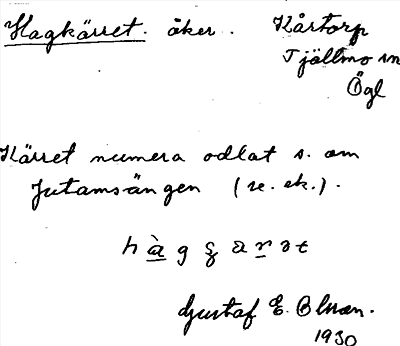 Hagkärret. åker. Kårtorp
Tjällmo sn
Ögl
Kärret numera odlat s. om
Jutamsängen (se. ek.).
Gustaf E. Blman.
1930